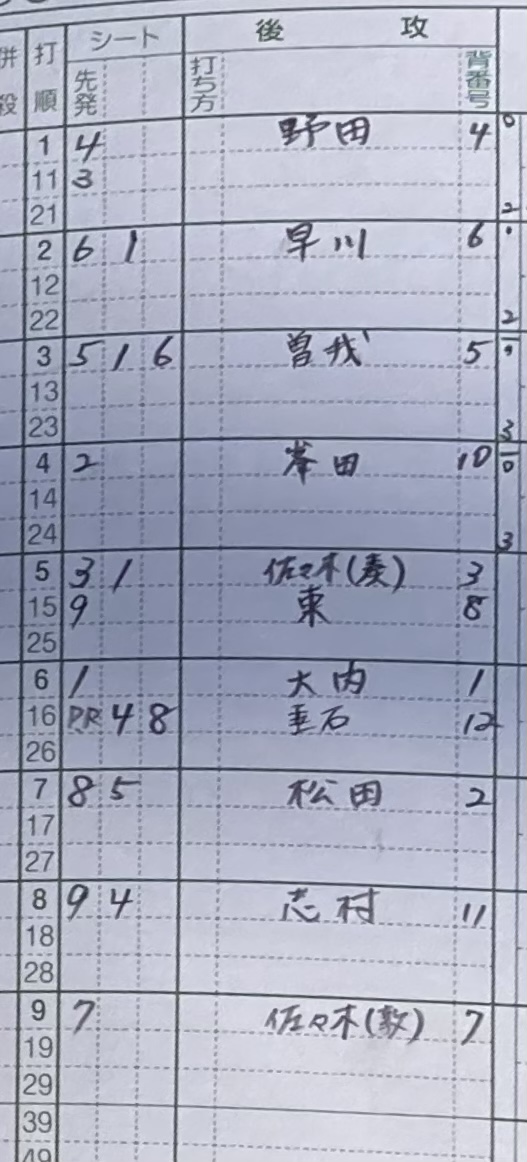 シート 後 攻
併殺 打順 先発 打ち方 背番号
1 4 野田 4 0
11 3
21 2
2 6 1 早川 6
12
22 2
3 5 1 6 曽我 5
13
23 3
4 2 峯田 10 0
14
24 3
5 3 1 佐々木(奏) 3
15 9 東 8
25
6 1 大内 1
16 PR 4 8 垂石 12
26
7 8 5 松田 2
17
27
8 9 4 志村 11
18
28
9 7 佐々木(敦) 7
19
29
39
49